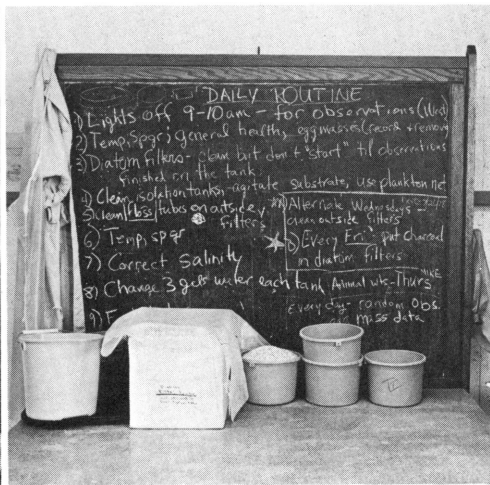 DAILY ROUTINE
1) Lights off 9-10 am - for observations
2) Temp, Spgr; general health, egg masses (record & remove
3) Diatom filters - clean but don't "start" til observations
finished on the tank
4) Clean isolation tanks, agitate substrate, use plankton net
5) Clean floss/tubs on outside filters
6) Temp, spgr
7) Correct Salinity
8) Change 3 gals water each tank
9) F
Alternate Wednesdays -
clean outside filters
b) Every Fri. put charcoal
in diatom filters
MIKE
Animal wts - Thurs
Every day - random obs.
mass data
IV